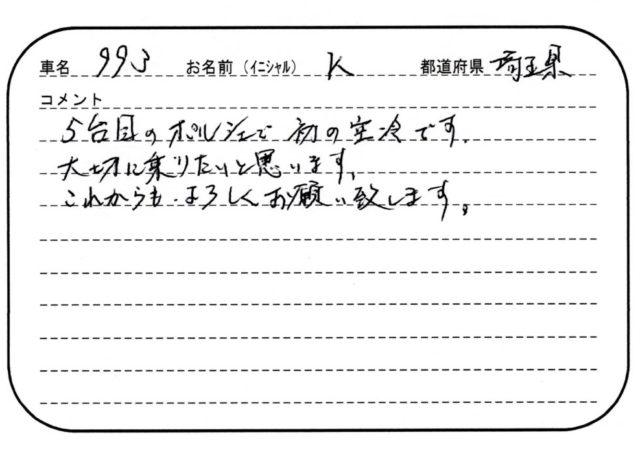 車名 993 お名前（イニシャル） K 都道府県 埼玉県
コメント
5台目のポルシェで 初の空冷です.
大切に乗りたいと思います.
これからも.よろしくお願い致します。